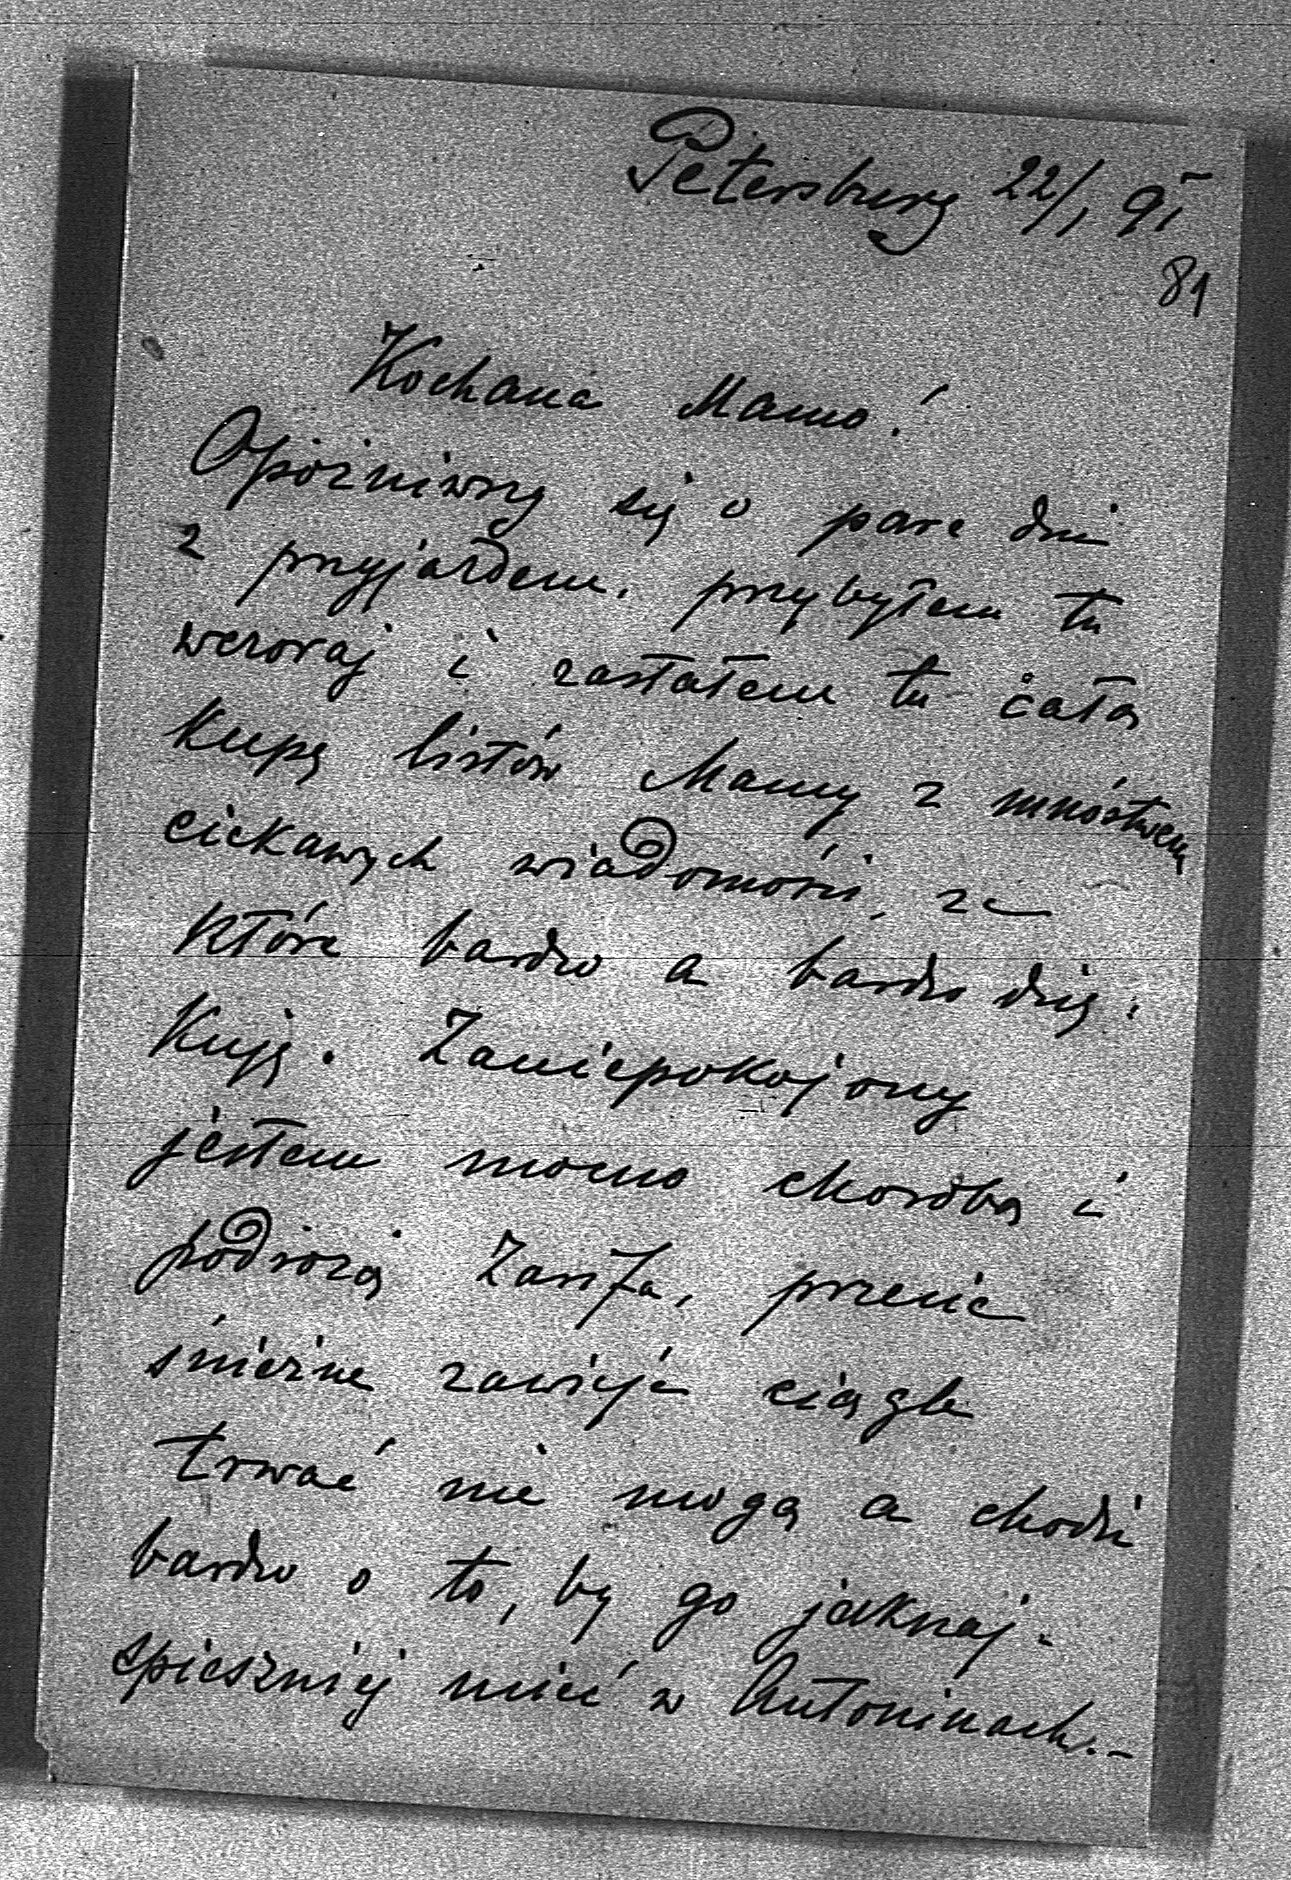 Petersburg 22/1 91
81
Kochana Mamo!
Opóźniwszy się o parę dni
z przyjazdem, przybyłem tu
wczoraj i zastałem tu całą
kupę listów Mamy z mnóstwem
ciekawych wiadomości, za
które bardzo a bardzo dzię-
kuję. Zaniepokojony
jestem mocno chorobą i
podróżą, przecie
śnieżne zawieje ciągle
trwać nie mogą a chodzi
bardzo o to, by go jaknaj-
spieszniej mieć w Antoninach.-